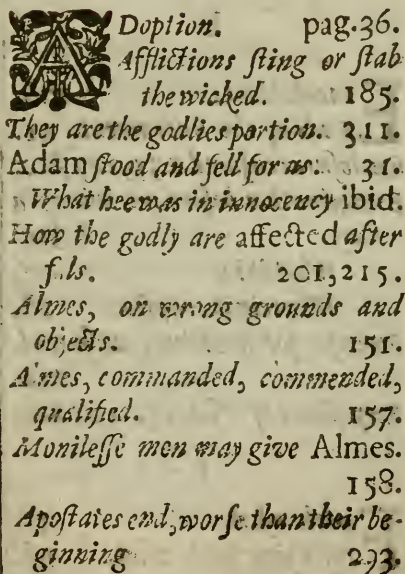 ADoption. pag.36.
Afflictions sting or stab
the wicked. 185.
They are the godlies portion. 311.
Adam stood and fell for us. 31.
What hee was in innocency ibid.
How the godly are affected after
fals. 201,215.
Almes, on wrong grounds and
objects. 151.
Almes, commanded, commended,
qualified. 157.
Monilesse men may give Almes.
158.
Apostates end, worse than their be-
ginning 293.